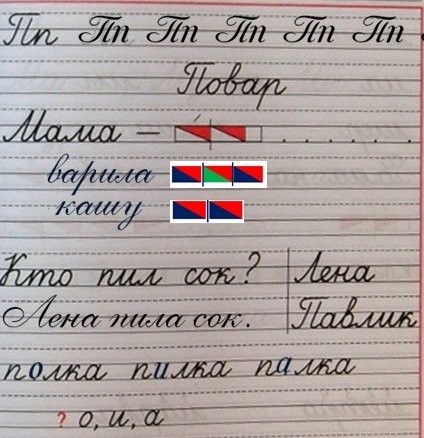 Пп Пп Пп Пп Пп Пп
Повар
Мама – . . . . . .
варила
кашу
Кто пил сок? Лена
Лена пила сок. Павлик
полка пилка палка
? о, и, а